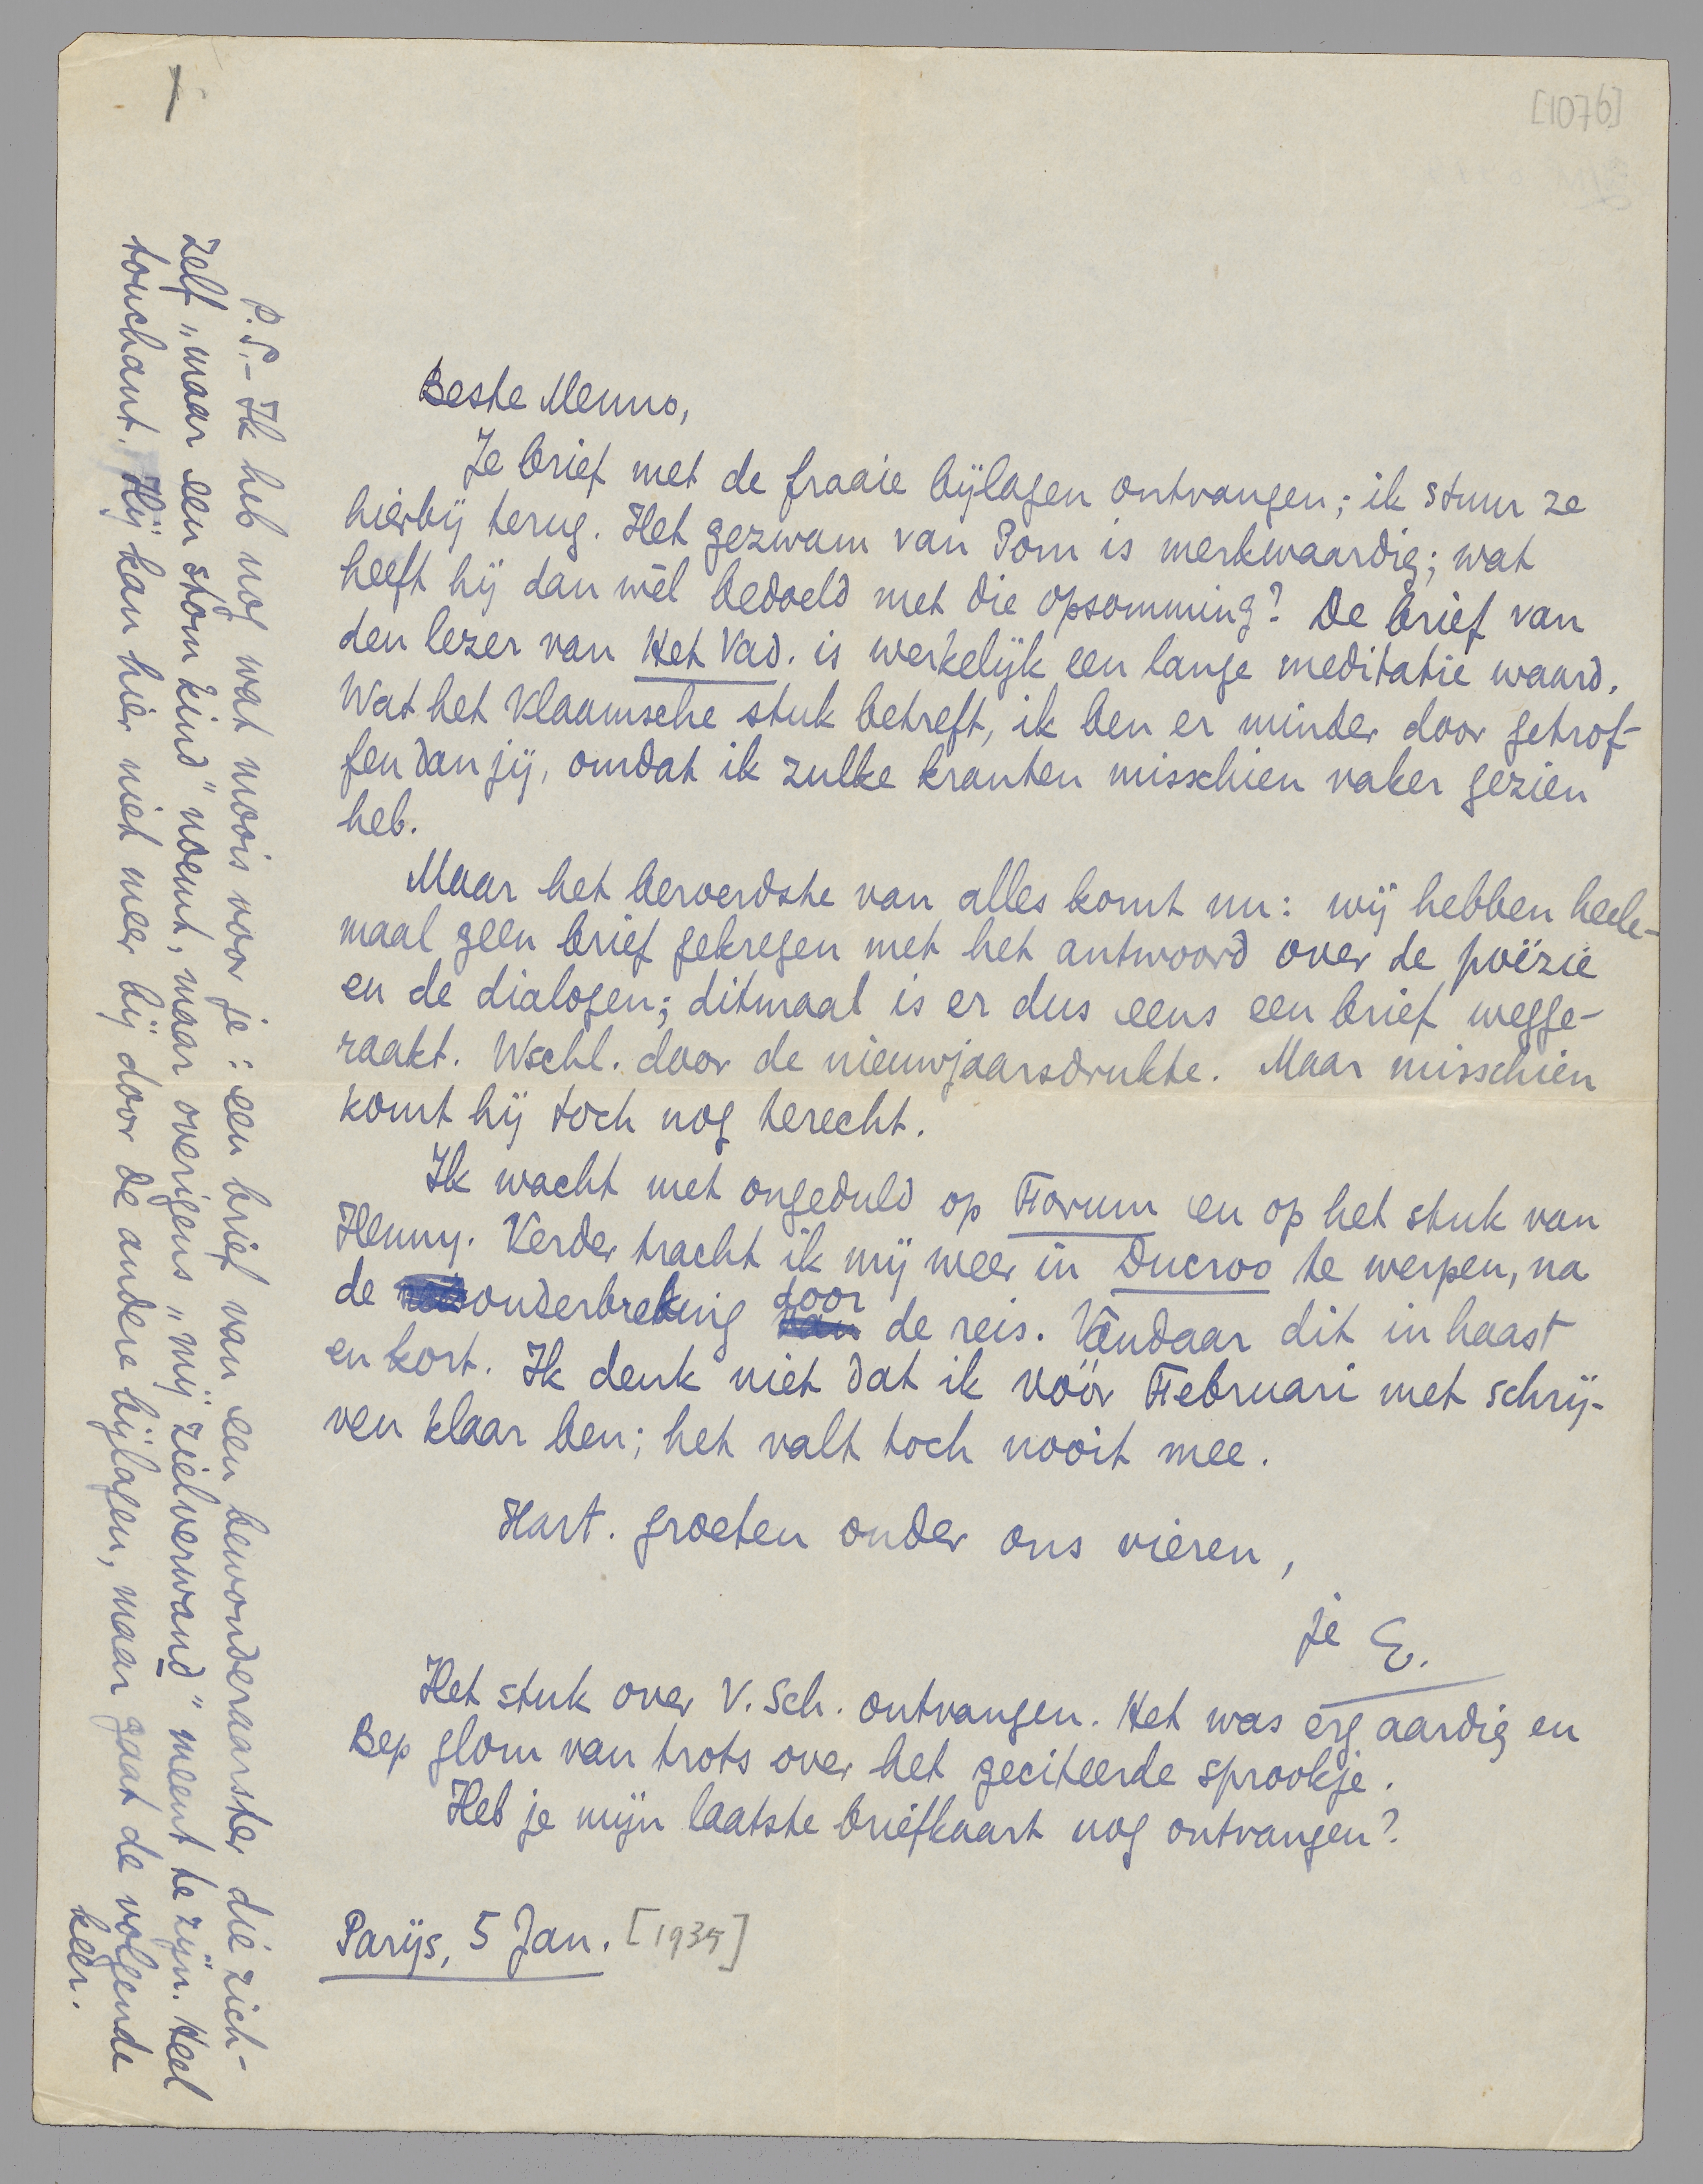 [1076]
Beste Menno,
Je brief met de fraaie bijlagen ontvangen; ik stuur ze
hierbij terug. Het gezwam van Pom is merkwaardig; wat
heeft hij dan wèl bedoeld met die opsomming? De brief van
den lezer van Het Vad. is werkelijk een lange meditatie waard.
Wat het Vlaamsche stuk betreft, ik ben er minder door getrof-
fen dan jij, omdat ik zulke kranten misschien vaker gezien
heb.
Maar het beroerdste van alles komt nu: wij hebben heele-
maal geen brief gekregen met het antwoord over de poëzie
en de dialogen; ditmaal is er dus eens een brief wegge-
raakt. Wschl. door de nieuwjaarsdrukte. Maar misschien
komt hij toch nog terecht.
Ik wacht met ongeduld op Forum en op het stuk van
Henny. Verder tracht ik mij weer in Ducroo te werpen, na
de onderbreking door de reis. Vandaar dit in haast
en kort. Ik denk niet dat ik vóór Februari met schrij-
ven klaar ben; het valt toch nooit mee.
Hart. groeten onder ons vieren,
je E.
Het stuk over V. Sch. ontvangen. Het was erg aardig en
Bep glom van trots over het geciteerde sprookje.
Heb je mijn laatste briefkaart nog ontvangen?
Parijs, 5 Jan. [1935]
P.S.- Ik heb nog wat moois voor je: een brief van een bewonderaarster die zich-
zelf „maar een stom kind" noemt, maar overigens „mij zielverwand" meent te zijn. Heel
touchant. Hij kan hier niet meer bij door de andere bijlagen, maar gaat de volgende
keer.